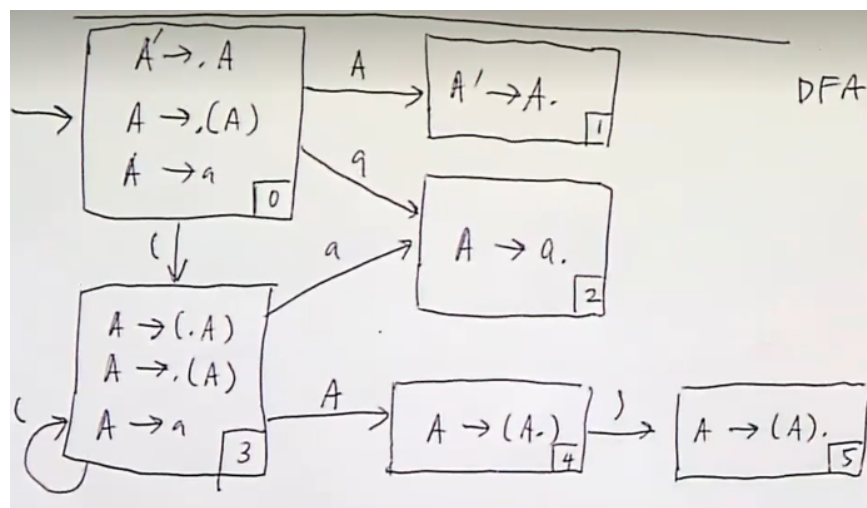 A' → . A
A → . (A)
A → a
0
A
A' → A.
1
DFA
a
A → a.
2
(
a
A → (. A)
A → . (A)
A → a
3
(
A
A → (A.)
4
)
A → (A).
5